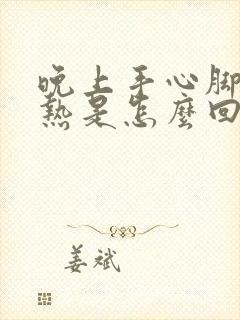 晚上手心脚
热是怎麼回
姜斌